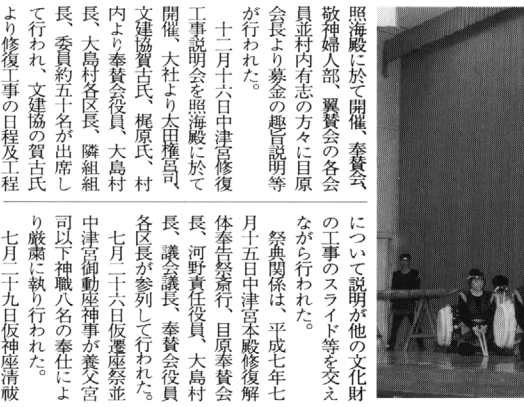 照海殿に於て開催、奉賛会、
敬神婦人部、翼賛会の各会
員並村内有志の方々に目原
会長より募金の趣旨説明等
が行われた。
十二月十六日中津宮修復
工事説明会を照海殿に於て
開催、大社より太田権宮司、
文建協賀古氏、梶原氏、村
内より奉賛会役員、大島村
長、大島村各区長、隣組組
長、委員約五十名が出席し
て行われ、文建協の賀古氏
より修復工事の日程及工程
について説明が他の文化財
の工事のスライド等を交え
ながら行われた。
祭典関係は、平成七年七
月十五日中津宮本殿修復解
体奉告祭斎行、目原奉賛会
長、河野責任役員、大島村
長、議会議長、奉賛会役員
各区長が参列して行われた。
七月二十六日仮遷座祭並
中津宮御動座神事が養父宮
司以下神職八名の奉仕によ
り厳粛に執り行われた。
七月二十九日仮神座清祓